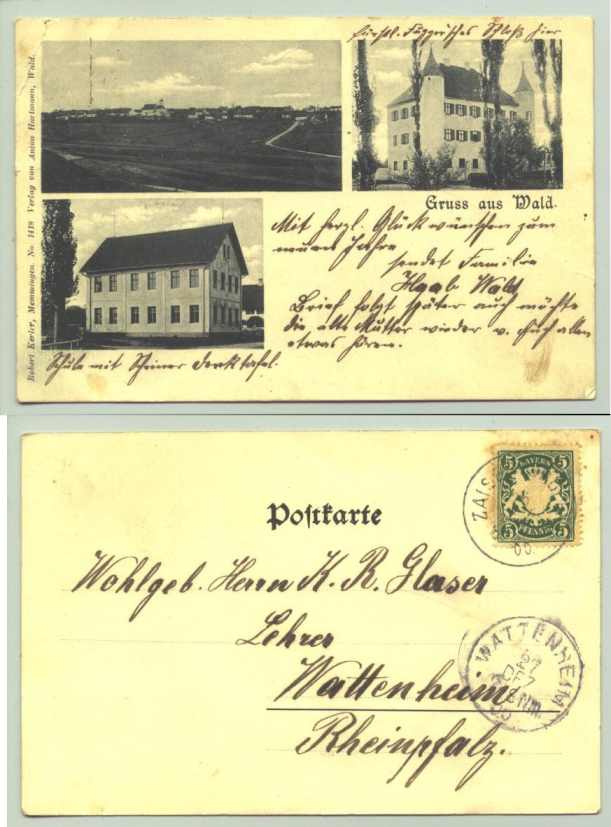 Fürstl. Fuggerisches Schloß hier
Robert Kerler, Memmingen. No. 1419 Verlag von Anton Hartmann, Wald.
Gruss aus Wald.
Mit herzl. Glückwünschen zum
neuen Jahre
sendet Familie
Haab Wald
Brief folgt später auch möchte
die alte Mutter wieder v. Euch allen
etwas hören.
Schule mit Scheiner Denktafel.
Postkarte
BAYERN
5 5
5 5
PFENNIG
ZAIS
Wohlgeb. Herrn K. R. Glaser
Lehrer
Wattenheim
Rheinpfalz.
WATTENHEIM